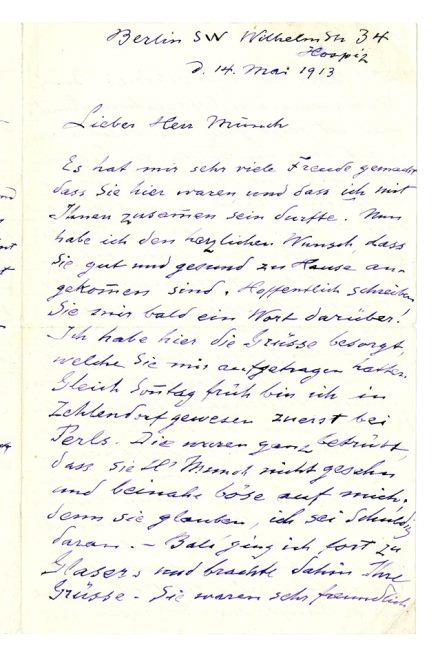 Berlin SW Wilhelmstr 34
Hospiz
d. 14. Mai 1913
Lieber Herr Munch
Es hat mir sehr viele Freude gemacht
dass Sie hier waren und dass ich mit
Ihnen zusamen sein durfte. Nun
habe ich den herzlichen Wunsch, dass
Sie gut und gesund zu Hause an-
gekomen sind. Hoffentlich schreiben
Sie mir bald ein Wort darüber!
Ich habe hier die Grüsse besorgt,
welche Sie mir aufgetragen hatten.
Gleich Sontag früh bin ich in
Zehlendorf gewesen zuerst bei
Perls. Die waren ganz betrübt,
dass sie Hr Munch nicht gesehn
und beinahe böse auf mich,
denn sie glauben, ich sei Schuldig
daran. – Bald ging ich fort zu
Glasers und brachte dahin Ihre
Grüsse. Sie waren sehr freundlich.